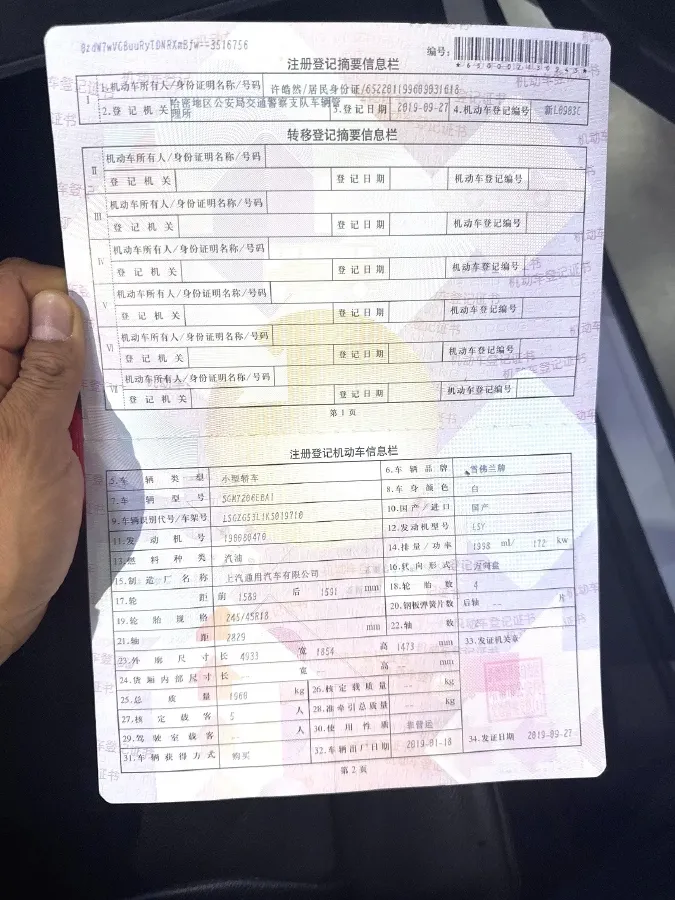 注册登记摘要信息栏
编号:
I
1.机动车所有人/身份证明名称/号码 许皓然/居民身份证/
2.登记机关 哈密地区公安局交通警察支队车辆管理所 3.登记日期 2019-09-27 4.机动车登记编号
转移登记摘要信息栏
II 机动车所有人/身份证明名称/号码
登记机关 登记日期 机动车登记编号
III 机动车所有人/身份证明名称/号码
登记机关 登记日期 机动车登记编号
IV 机动车所有人/身份证明名称/号码
登记机关 登记日期 机动车登记编号
V 机动车所有人/身份证明名称/号码
登记机关 登记日期 机动车登记编号
VI 机动车所有人/身份证明名称/号码
登记机关 登记日期 机动车登记编号
VII 机动车所有人/身份证明名称/号码
登记机关 登记日期 机动车登记编号
第1页
注册登记机动车信息栏
5.车辆类型 小型轿车 6.车辆品牌 雪佛兰牌
7.车辆型号 8.车身颜色 白
9.车辆识别代号/车架号 10.国产/进口 国产
11.发动机号 12.发动机型号 LSY
13.燃料种类 汽油 14.排量/功率 1998 ml/ kw
15.制造厂名称 上汽通用汽车有限公司 16.转向形式 方向盘
17.轮距 前 1589 后 1591 mm 18.轮胎数 4
19.轮胎规格 245/45R18 20.钢板弹簧片数 后轴 --
21.轴距 2829 mm 22.轴数
23.外廓尺寸 长 4933 宽 1854 高 1473 mm 33.发证机关章
24.货厢内部尺寸 长 宽 -- 高 -- mm
25.总质量 1960 kg 26.核定载质量 -- kg
27.核定载客 5 人 28.准牵引总质量 -- kg
29.驾驶室载客 -- 人 30.使用性质 非营运
31.车辆获得方式 购买 32.车辆出厂日期 2019-01-18 34.发证日期 2019-09-27
第2页